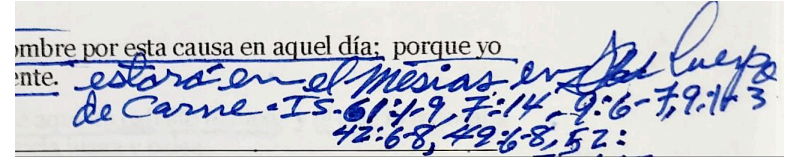 ombre por esta causa en aquel día; porque yo
ente. estará en el Mesias en Cuerpo
de Carne - IS. 61:1-9, 7:14, 9:6-7, 9:1-3
42:6-8, 49:6-8, 52: